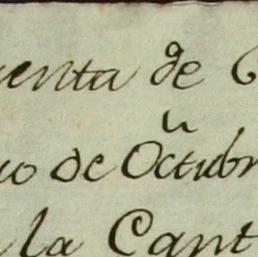 uenta de C
io de Octubr
la Cant